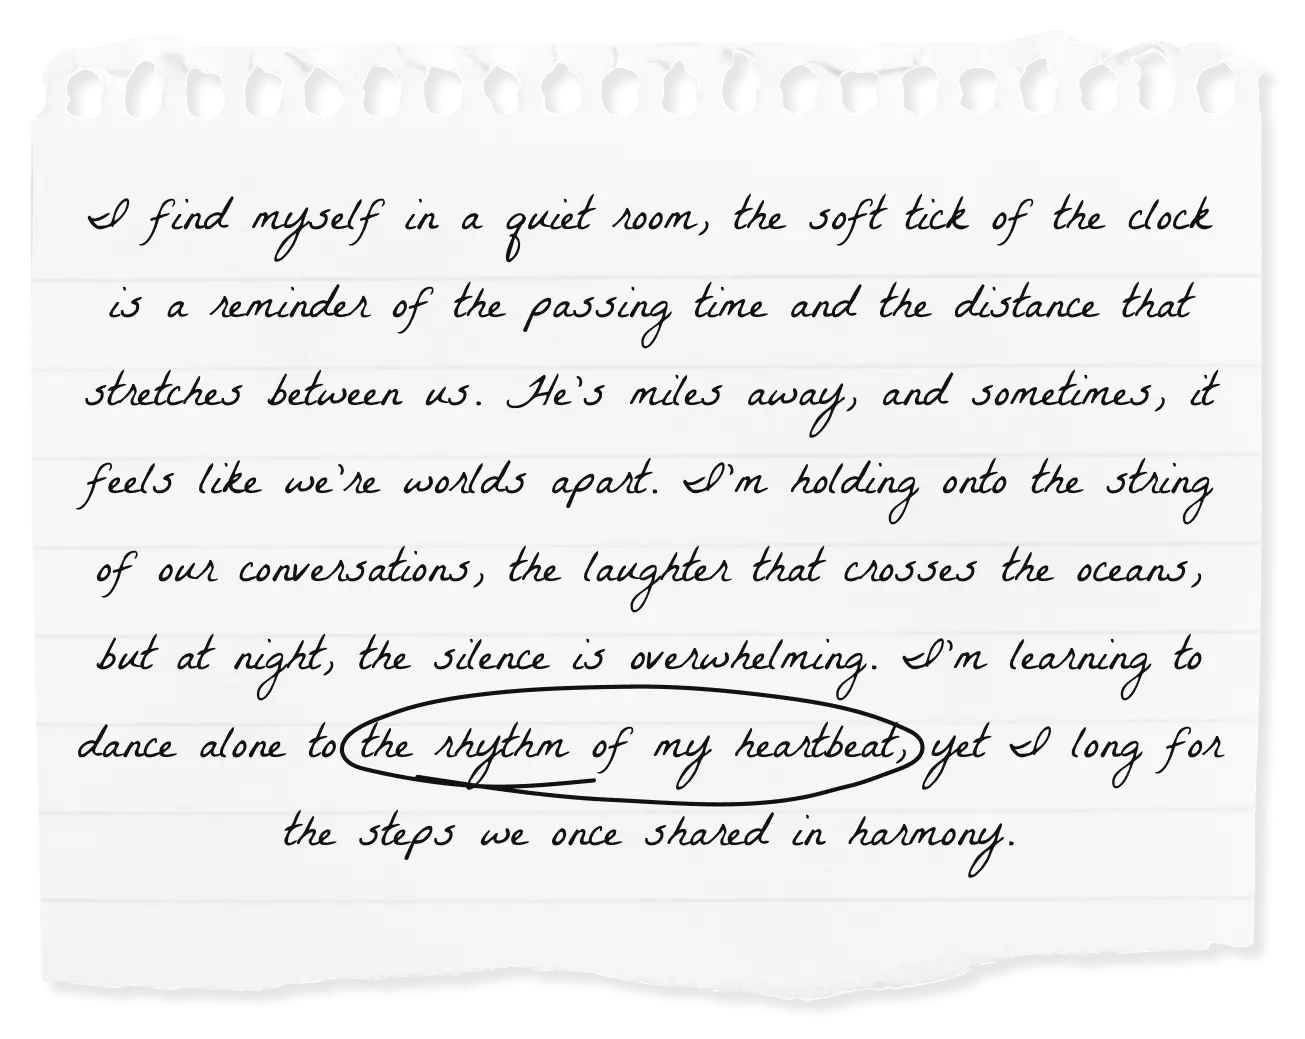 I find myself in a quiet room, the soft tick of the clock
is a reminder of the passing time and the distance that
stretches between us. He's miles away, and sometimes, it
feels like we're worlds apart. I'm holding onto the string
of our conversations, the laughter that crosses the oceans,
but at night, the silence is overwhelming. I'm learning to
dance alone to the rhythm of my heartbeat, yet I long for
the steps we once shared in harmony.